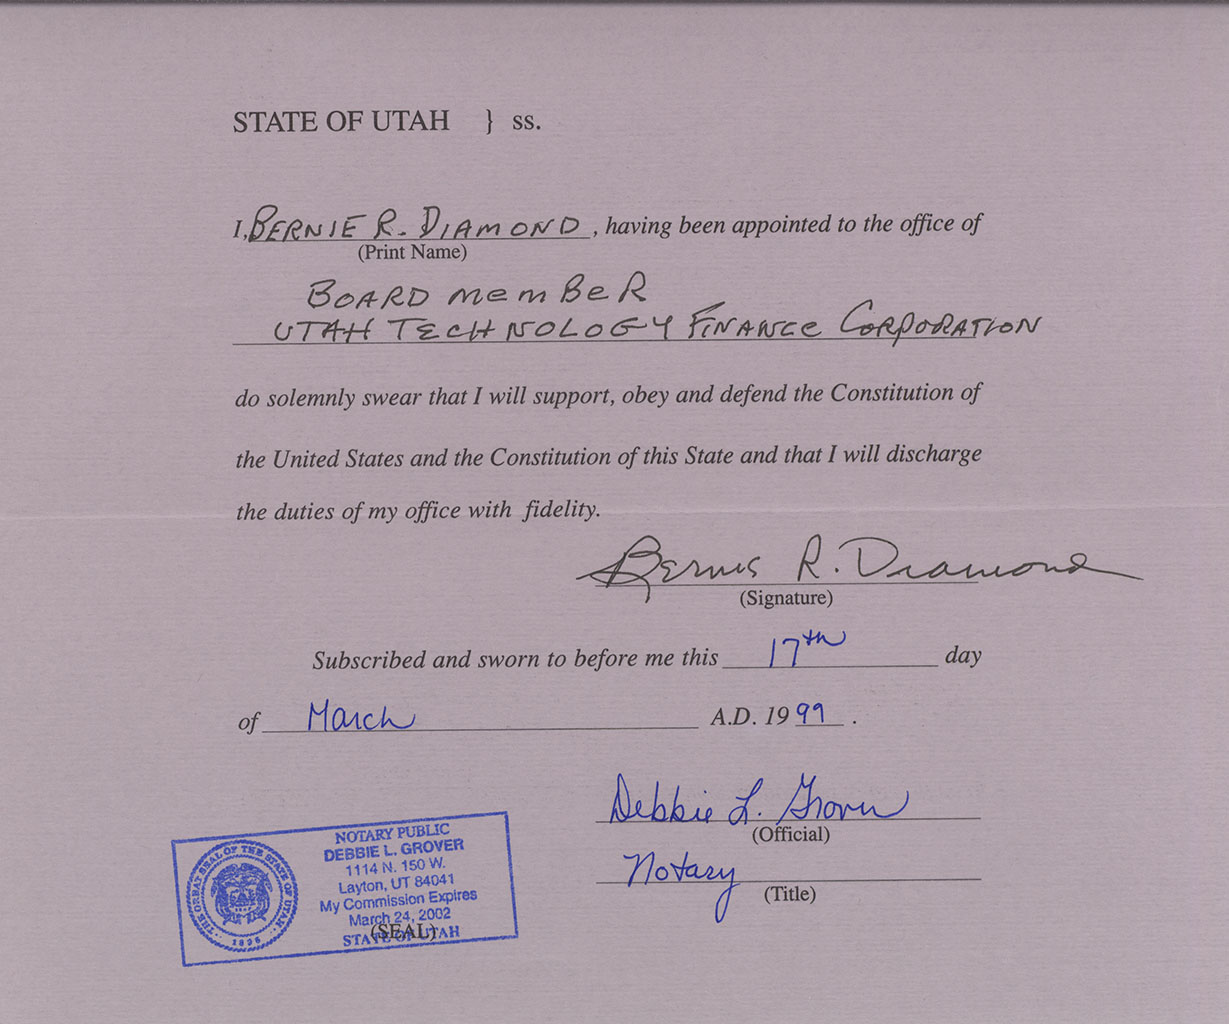 STATE OF UTAH } ss.
I, BERNIE R. DIAMOND, having been appointed to the office of
(Print Name)
BOARD MEMBER
UTAH TECHNOLOGY FINANCE CORPORATION
do solemnly swear that I will support, obey and defend the Constitution of
the United States and the Constitution of this State and that I will discharge
the duties of my office with fidelity.
Bernie R. Diamond
(Signature)
Subscribed and sworn to before me this 17th day
of March A.D. 1999.
Debbie L. Grover
(Official)
Notary
(Title)
THE GREAT SEAL OF THE STATE OF UTAH
1896
NOTARY PUBLIC
DEBBIE L. GROVER
1114 N. 150 W.
Layton, UT 84041
My Commission Expires
March 24, 2002
STATE OF UTAH
(SEAL)